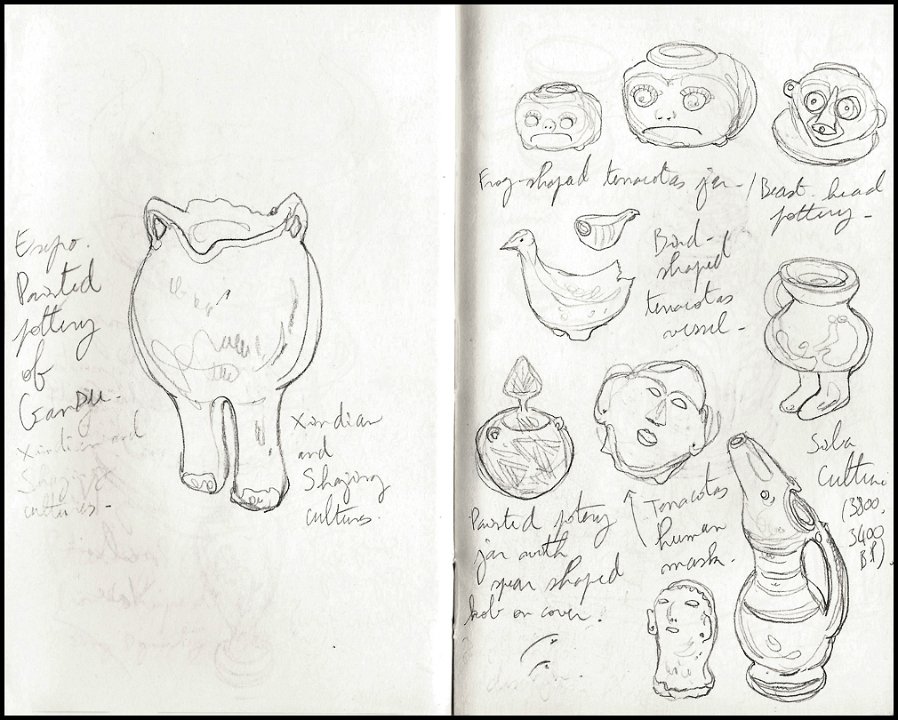 Expo.
Painted
pottery
of
Gansu.
Xindian and
Shajing
cultures.-
Xindian
and
Shajing
cultures.
Frog-shaped terracotas jar - / Beast head
pottery -
Bird-
shaped
terracotas
vessel -
Siba
Culture
(3800.
3400
BP).
Painted potery
jar with
spear shaped
kob on cover.
Terracotas
human
mask.